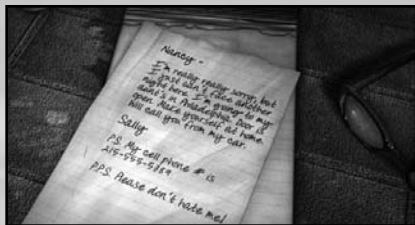 Nancy -
I'm really really sorry, but
I just can't face another
night here. I'm going to my
aunt's in Philadelphia. Door is
open. Make yourself at home.
Will call you from my car.
Sally
P.S. My cell phone # is
215-555-5889
P.P.S. Please don't hate me!